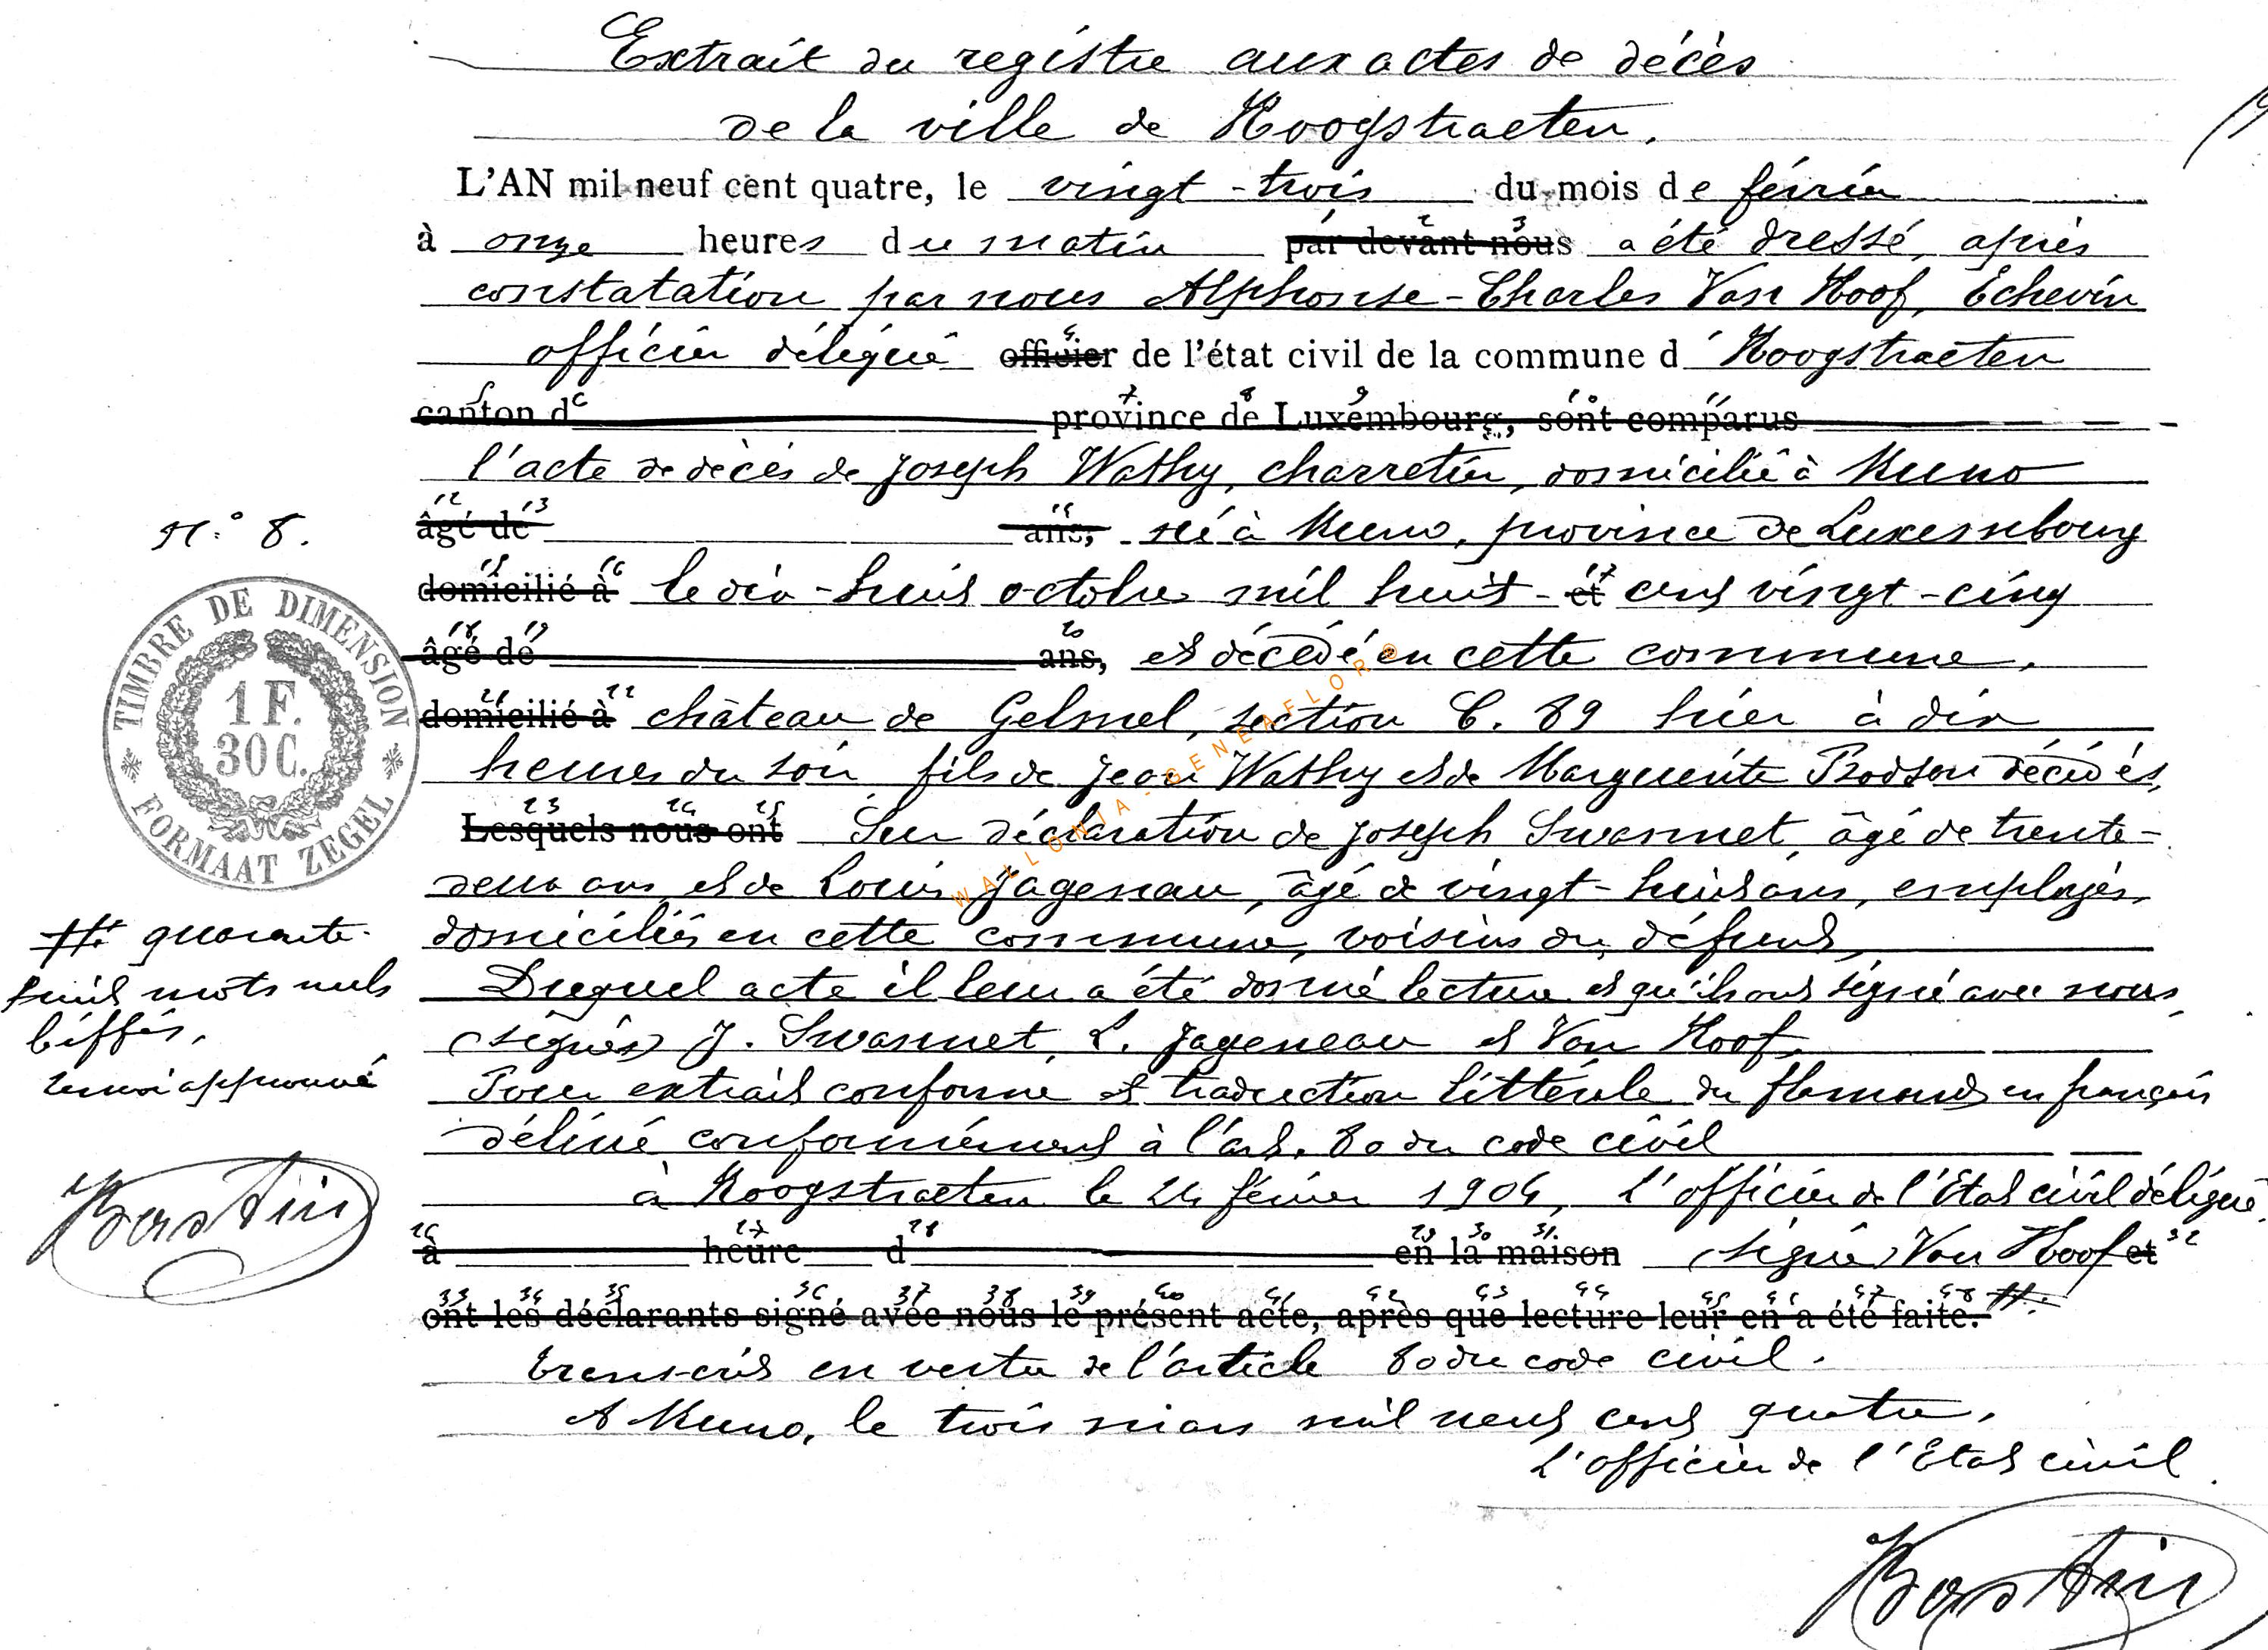 Extrait du registre aux actes de décès
de la ville de Hoogstraeten.
L'AN mil neuf cent quatre, le vingt-trois du mois de février
à onze heures du matin par devant nous a été dressé, après
constatation par nous Alphonse-Charles Van Hoof, Echevin
officier délégué officier de l'état civil de la commune d'Hoogstraeten
canton d province de Luxembourg, sont comparus
l'acte de décès de Joseph Wathy, charretier, domicilié à Muno
N.° 8.
âgé de ans, né à Muno, province de Luxembourg
domicilié à le dix-huit octobre mil huit-et cent vingt-cinq
âgé de ans, est décédé en cette commune,
domicilié à château de Gelmel, section C. 89 hier à dix
heures du soir fils de Jean Wathy et de Marguerite Bodson décédés,
Lesquels nous ont Sur déclaration de Joseph Swannet, âgé de trente-
deux ans, et de Louis Jageneau, âgé de vingt-huit ans, employés,
domiciliés en cette commune, voisins du défunt,
Duquel acte il leur a été donné lecture et qu'ils ont signé avec nous,
(signés) J. Swannet, L. Jageneau et Van Hoof,
Pour extrait conforme et traduction littérale du flamand en français
délivré conformément à l'art. 80 du code civil
à Hoogstraeten le 24 février 1904, L'officier de l'Etat civil délégué,
à heure d en la maison (signé) Van Hoof et
ont les déclarants signé avec nous le présent acte, après que lecture leur en a été faite. #.
transcrit en vertu de l'article 80 du code civil.
A Muno, le trois mars mil neuf cent quatre.
L'officier de l'Etat civil
Bastin
TIMBRE DE DIMENSION
1 F.
30 C.
FORMAAT ZEGEL
#. quarante-
huit mots nuls
biffés,
renvoi approuvé
Bastin
WALLONIA-GENEAFLOR®